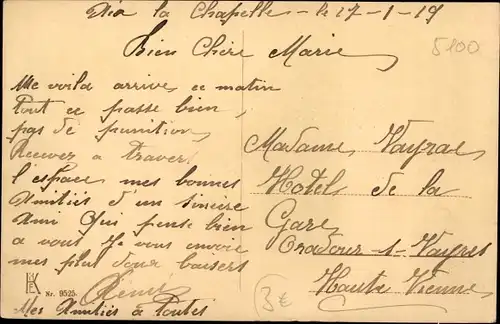 Aix la Chapelle - le 17-1-19
5100
Bien Chère Marie
Me voila arrive ce matin
Tout ce passe bien,
pas de punition,
Recevez a traver
l'espace mes bonnes
Amitiés d'un sincère
Ami Qui pense bien
a vous Je vous envoie
mes plus doux baisers
Rémi
Mes Amitiés à Toutes
Madame Vayrac
Hotels de la
Gare
Oradour-s-Vayres
Haute Vienne
3€
Nr. 9525.